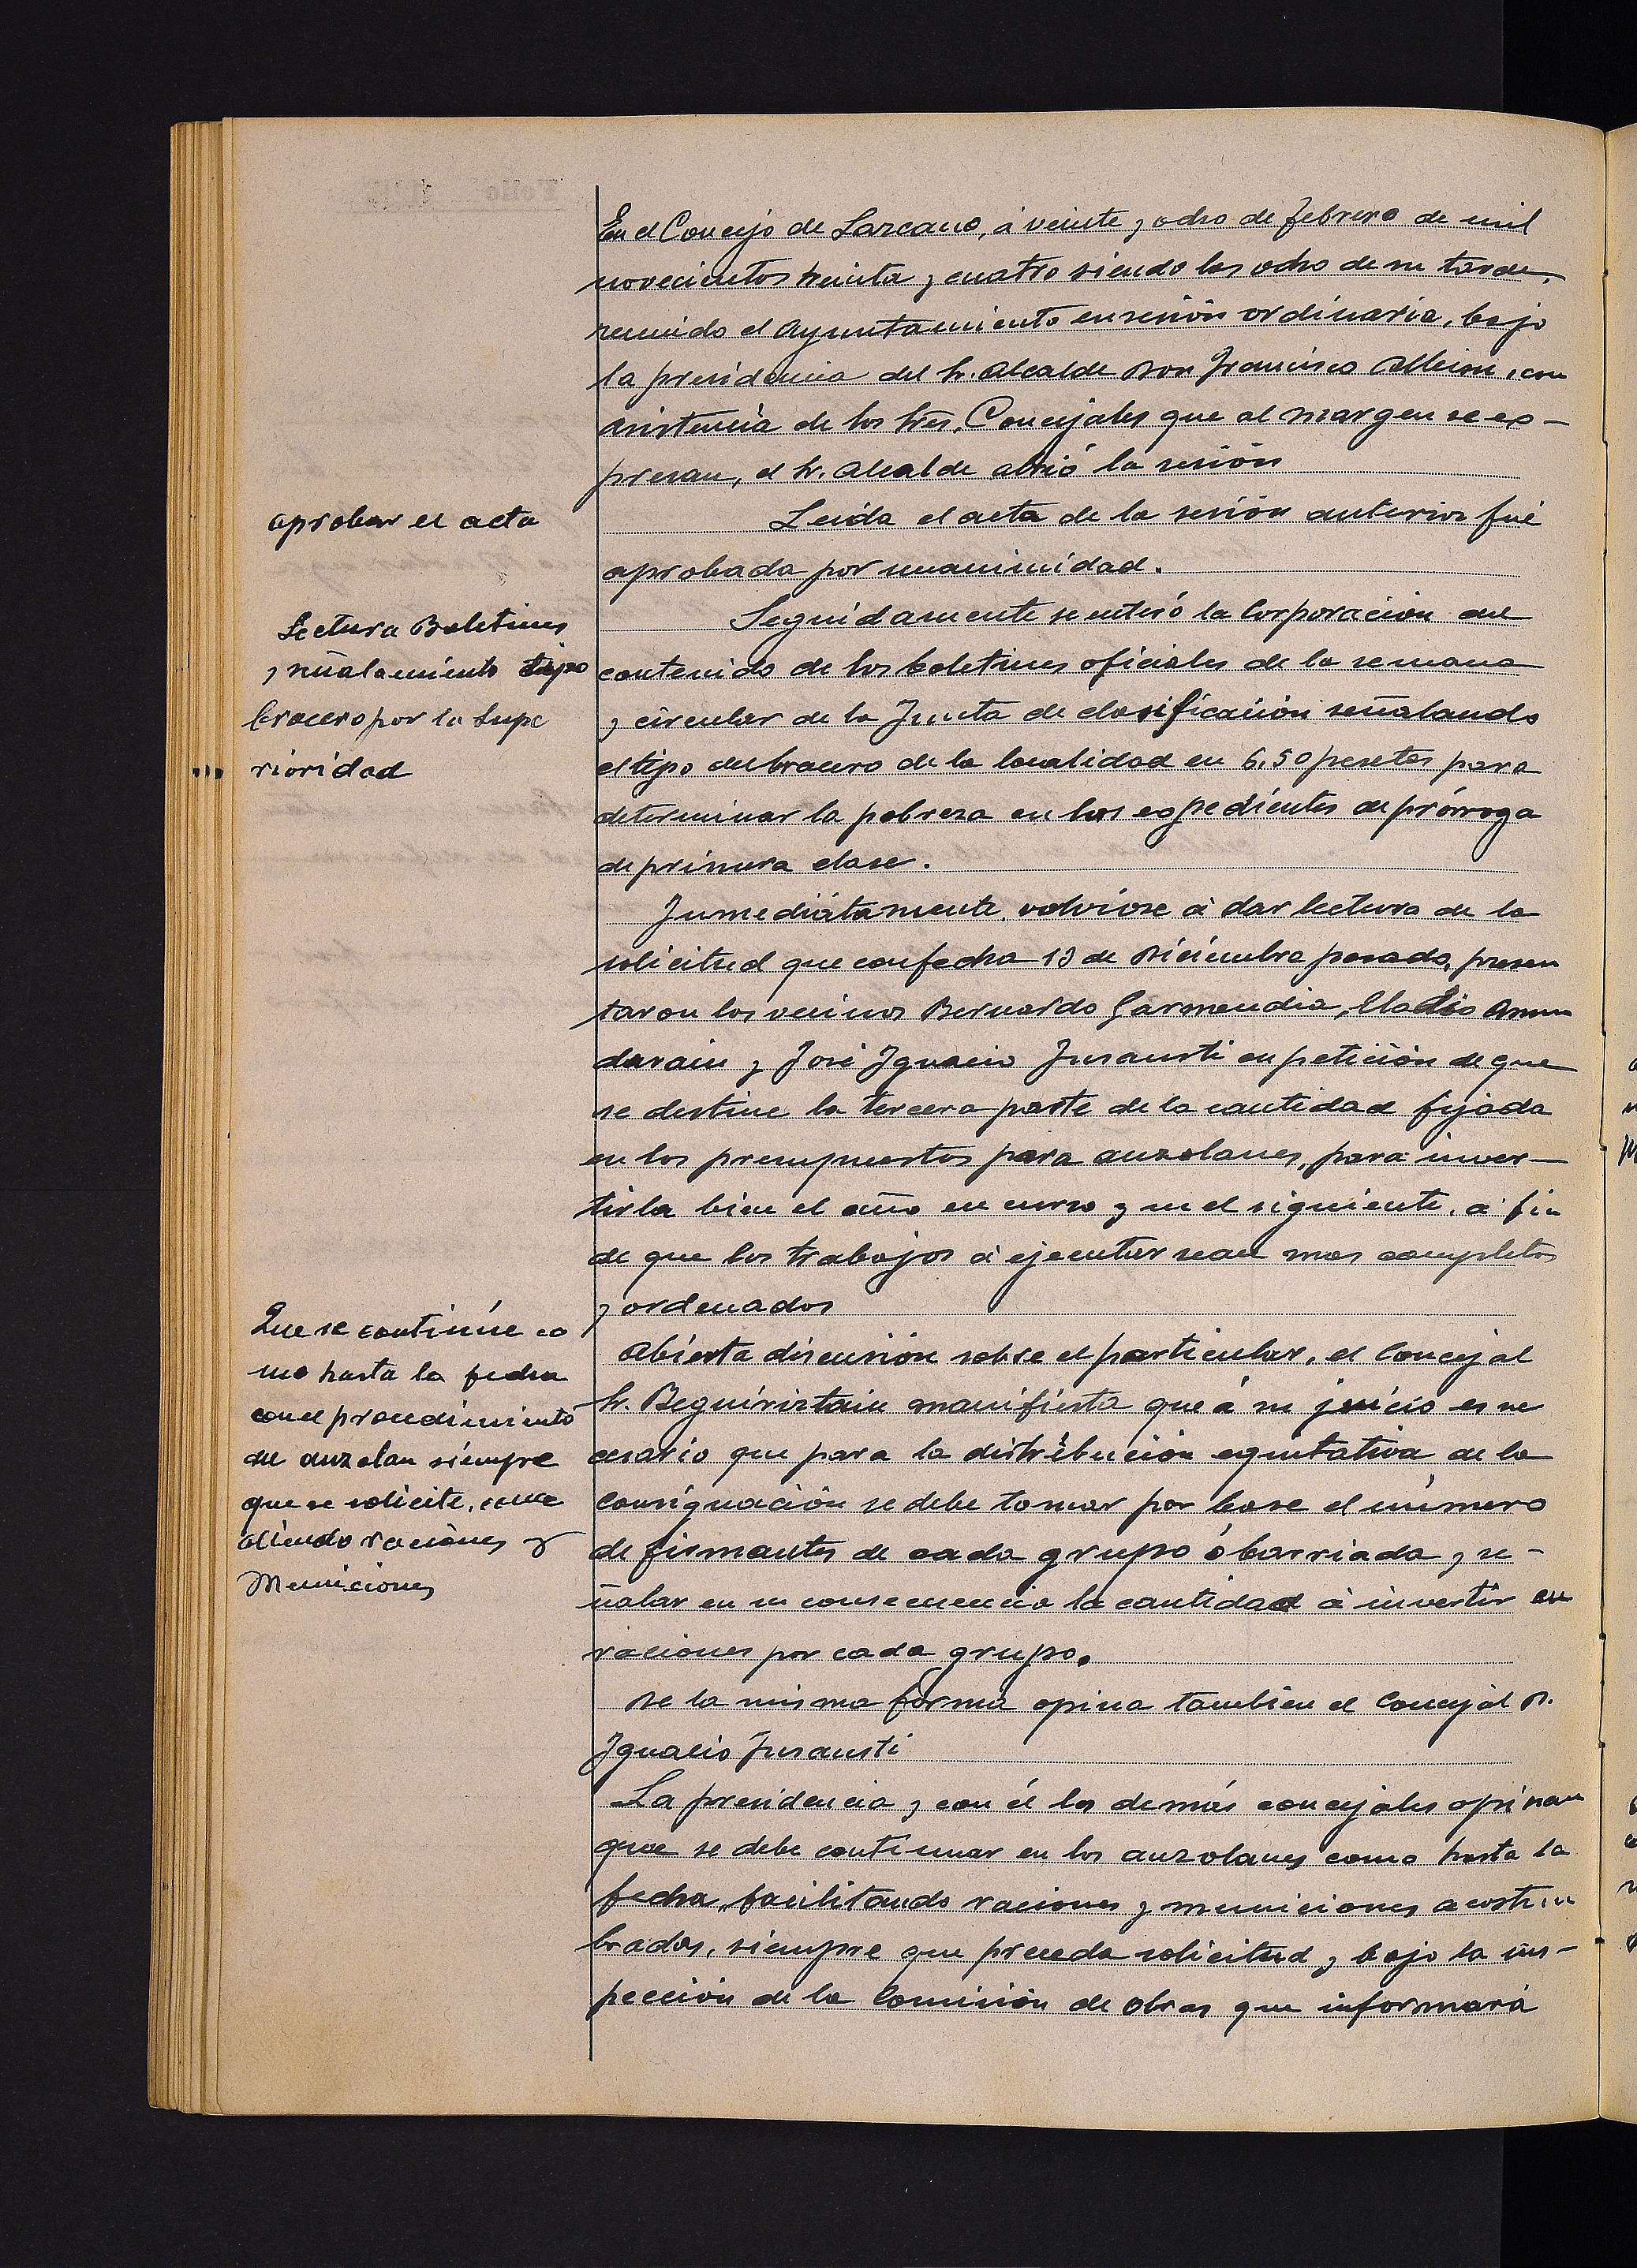 En el Concejo de Lazcano, á veinte y ocho de febrero de mil
novecientos treinta y cuatro siendo las ocho de su tarde,
reunido el Ayuntamiento en sesión ordinaria, bajo
la presidencia del Sr. Alcalde Don Francisco, con
asistencia de los Sres. Concejales que al margen se ex-
presan, el Sr. Alcalde abrió la sesión
aprobar el acta
Leida el acta de la sesión anterior fué
aprobada por unanimidad.
Lectura Boletines
y señalamiento tipo
bracero por la Supe
rioridad
Seguidamente se enteró la Corporación del
contenido de los boletines oficiales de la semana
y circular de la Junta de clasificación señalando
el tipo del bracero de la localidad en 6,50 pesetas para
determinar la pobreza en los expedientes de prórroga
de primera clase.
Inmediatamente, volvióse á dar lectura de la
solicitud que con fecha 13 de Diciembre pasado, presen
taron los vecinos Bernardo Garmendia, Eladio Amun
darain y José Ignacio Insausti en petición de que
se destine la tercera parte de la cantidad fijada
en los presupuestos para auzolanes, para inver-
tirla bien el año en curso y en el siguiente, á fin
de que los trabajos á ejecutar sean mas completos
y ordenados
Que se continúe co
mo hasta la fecha
con el procedimiento
del auzolan siempre
que se solicite, conce
diendo raciones y
Municiones
Abierta discusión sobre el particular, el Concejal
Sr. Beguiristain manifiesta que á su juicio es ne
cesario que para la distribución equitativa de la
consignación se debe tomar por base el número
de firmantes de cada grupo ó barriada y se-
ñalar en su consecuencia la cantidad á invertir en
raciones por cada grupo.
De la misma forma opina tambien el Concejal D.
Ignacio Insausti
La presidencia y con él los demás concejales opinan
que se debe continuar en los auzolanes como hasta la
fecha, facilitando raciones y municiones acostum
bradas, siempre que preceda solicitud y bajo la ins-
pección de la Comisión de Obras que informará